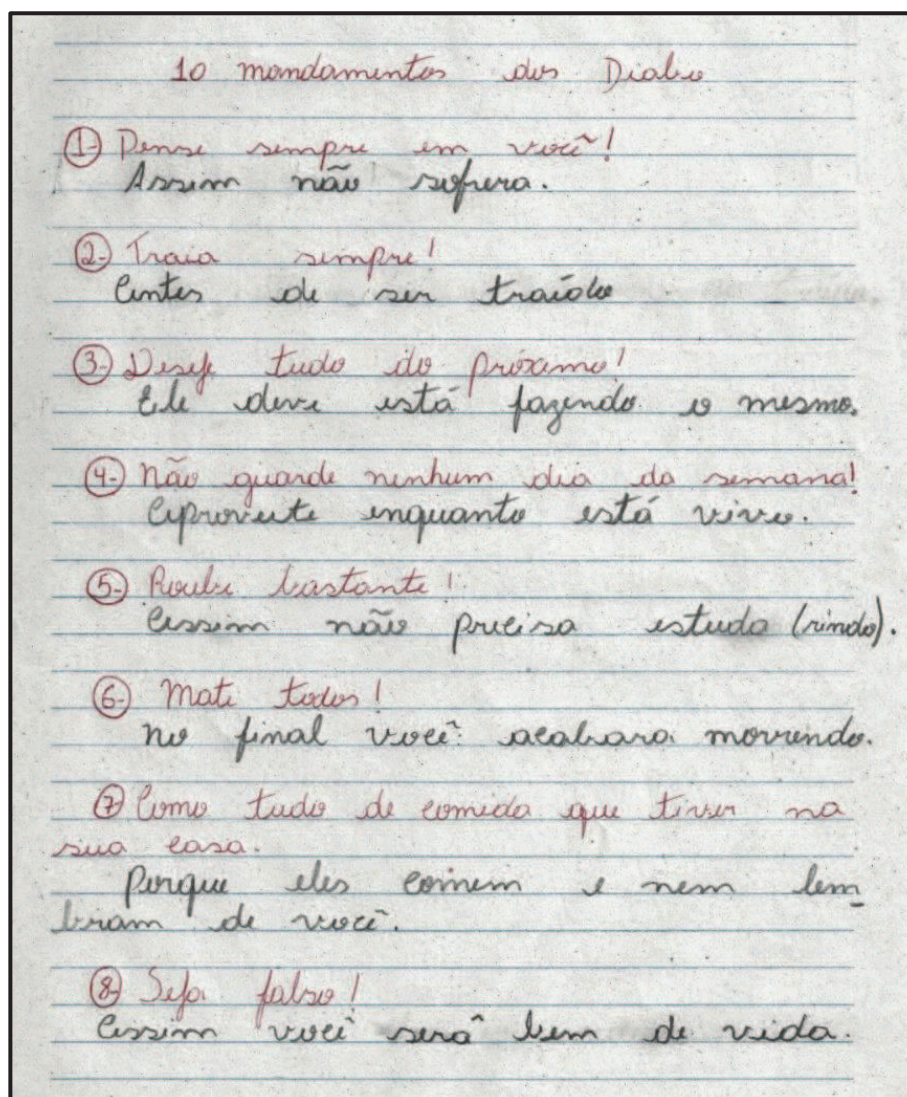 10 mandamentos dos Diabo
1- Pense sempre em você!
Assim não sofrera.
2- Traia sempre!
Antes de ser traído
3- Deseje tudo do próximo!
Ele deve está fazendo o mesmo.
4- Não guarde nenhum dia da semana!
Aproveite enquanto está vivo.
5- Roube bastante!
Assim não precisa estuda (rindo).
6- Mate todos!
No final você acabara morrendo.
7- Coma tudo de comida que tiver na
sua casa.
Porque eles comem e nem lem-
bram de você.
8- Seja falso!
Assim você será bem de vida.